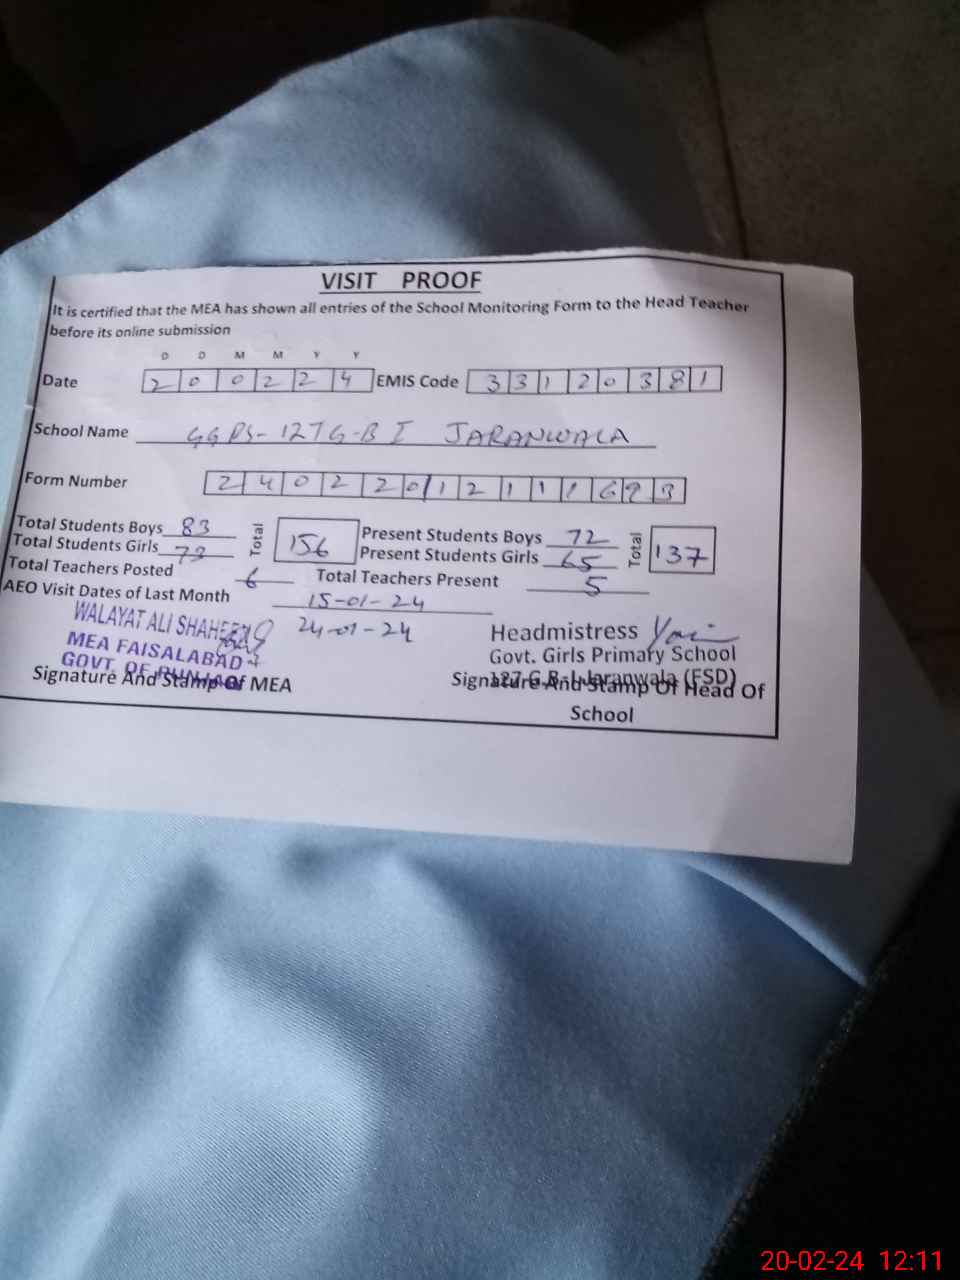 VISIT PROOF
It is certified that the MEA has shown all entries of the School Monitoring Form to the Head Teacher
before its online submission
D D M M Y Y
Date 200224 EMIS Code 33120381
School Name GGPS-127G-B I JARANWALA
Form Number 24022012111693
Total Students Boys 83 Total 156 Present Students Boys 72 Total 137
Total Students Girls 73 Present Students Girls 65
Total Teachers Posted 6 Total Teachers Present 5
AEO Visit Dates of Last Month 15-01-24
24-01-24
WALAYAT ALI SHAHEEN
MEA FAISALABAD-
GOVT. OF PUNJAB
Signature And Stamp Of MEA
Headmistress
Govt. Girls Primary School
127 G.B-I Jaranwala (FSD)
Signature And Stamp Of Head Of
School
20-02-24 12:11